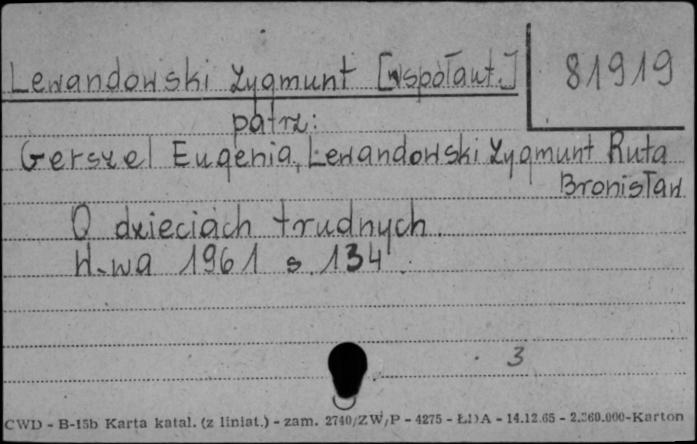 Lewandowski Zygmunt [współaut.]
81919
patrz:
Gerszel Eugenia, Lewandowski Zygmunt Ruta
Bronisław
O dzieciach trudnych.
W-wa 1961 s. 134.
3
CWD - B-15b Karta katal. (z liniat.) - zam. 2740/ZW/P - 4275 - ŁDA - 14.12.65 - 2.360.000-Karton